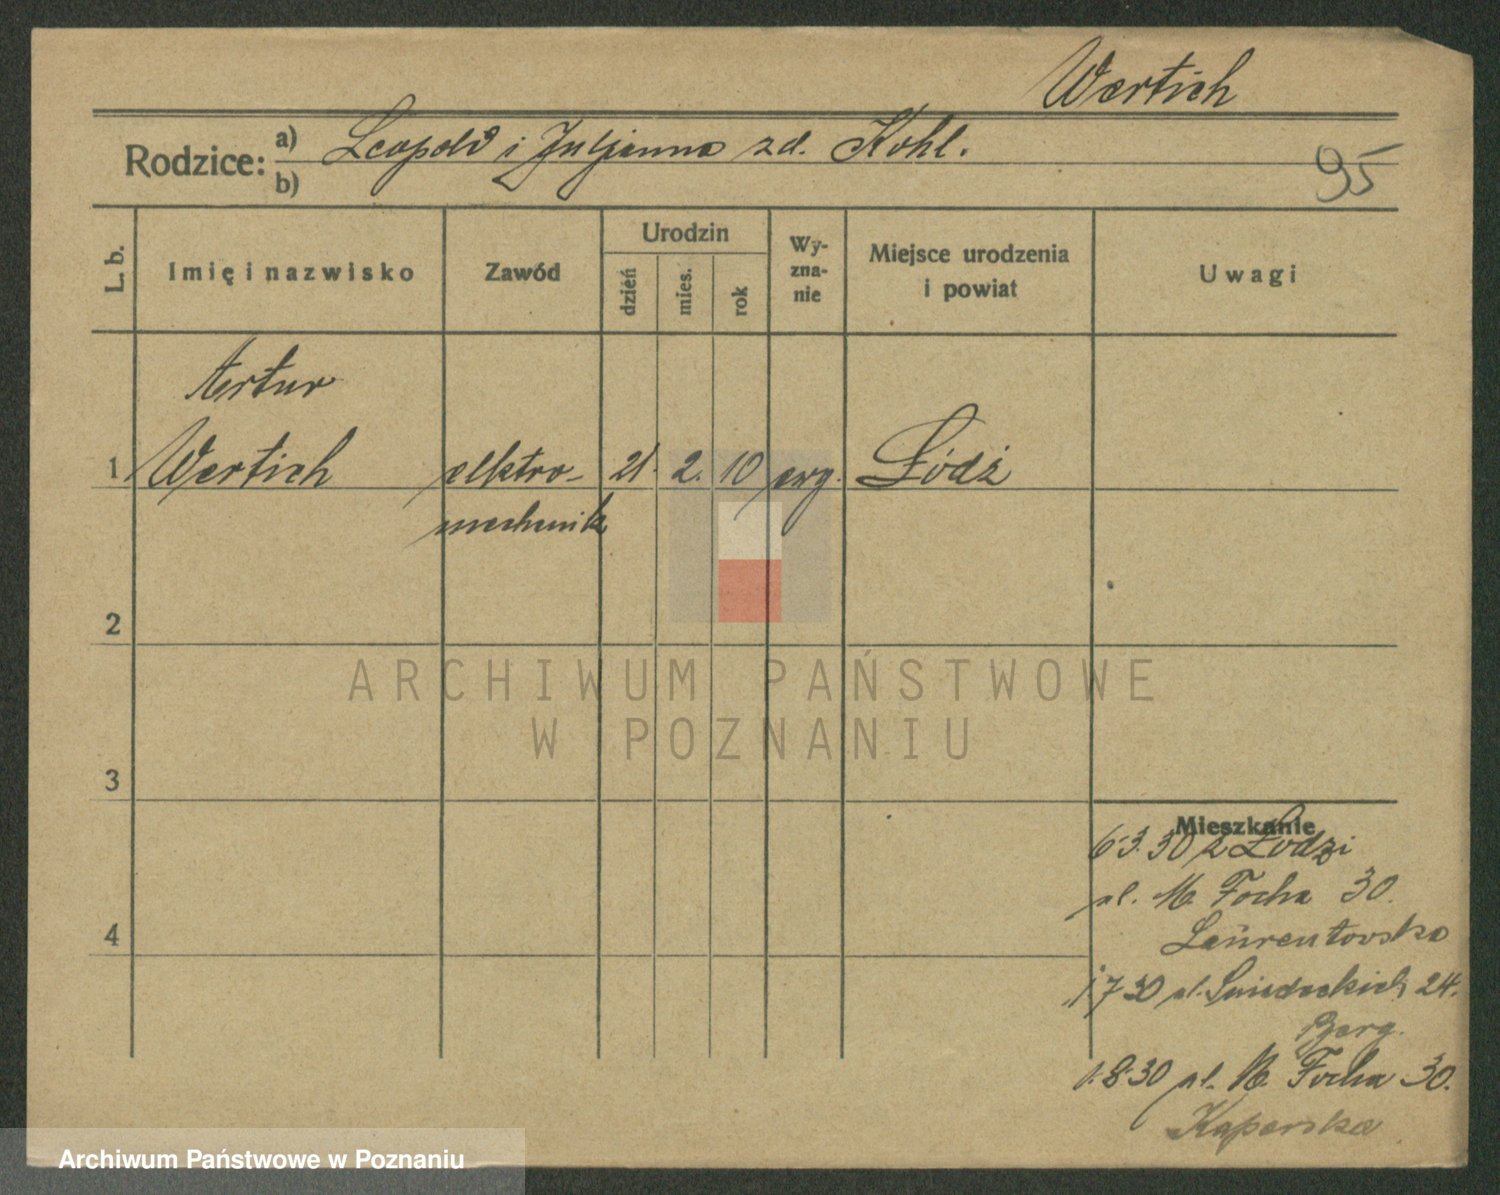 Wertich
Rodzice: a) Leopold i Juljanna zd. Kohl.
b)
95
L. b. Imię i nazwisko Zawód Urodzin dzień mies. rok Wy-zna-nie Miejsce urodzenia i powiat Uwagi
Artur
1 Wertich elktro- 21. 2. 10 ewg. Łódź
mechanik
2
ARCHIWUM PAŃSTWOWE
W POZNANIU
3
Mieszkanie
6.3.30 z Łodzi
ul. M. Focha 30.
4
Laurentowska
1 7 30 ul. Śniadeckich 24.
Berg.
1.8.30 ul. M. Focha 30.
Kaperska
Archiwum Państwowe w Poznaniu